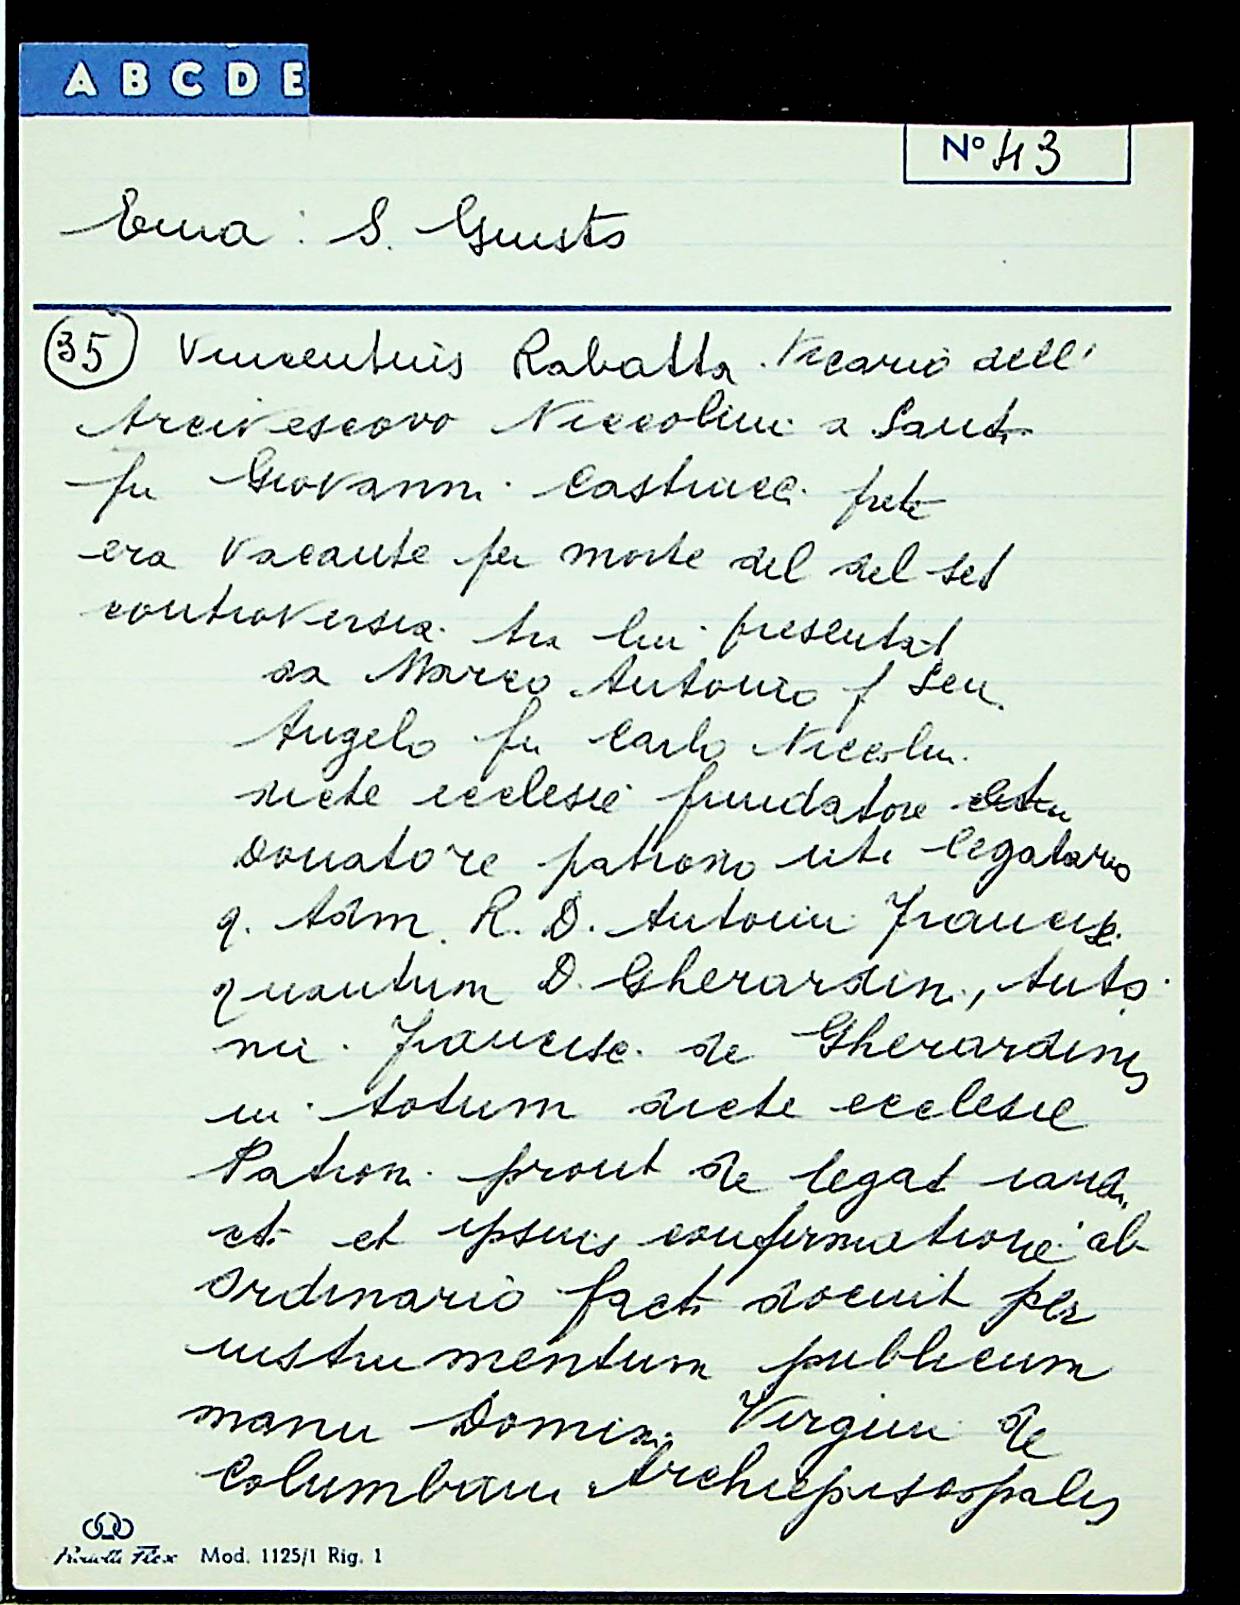 A B C D E
N° 43
Ema: S. Giusto
35 Vincentius Rabatta Vicario dell'
Arcivescovo Niccolini a Sant.
fu Giovanni Castrucci prete
era vacante per morte del del set
controversia tra lui presentat
da Marco Antonio f Sen.
Angelo fu Carlo Niccolin.
dicte ecclesie fundatore
Donatore patrono uti legatario
q. Adm. R. D. Antonii Francisc.
quantum D. Gherardin., Anto
nii Francisc. de Gherardinis
in totum dicte ecclesie
Patron. prout de legat
et ipsius confirmatione ab
ordinario fact. docuit per
instrumentum publicum
manu Domin. Virginii de
Columbani Archiepiscopalis
Mod. 1125/1 Rig. 1